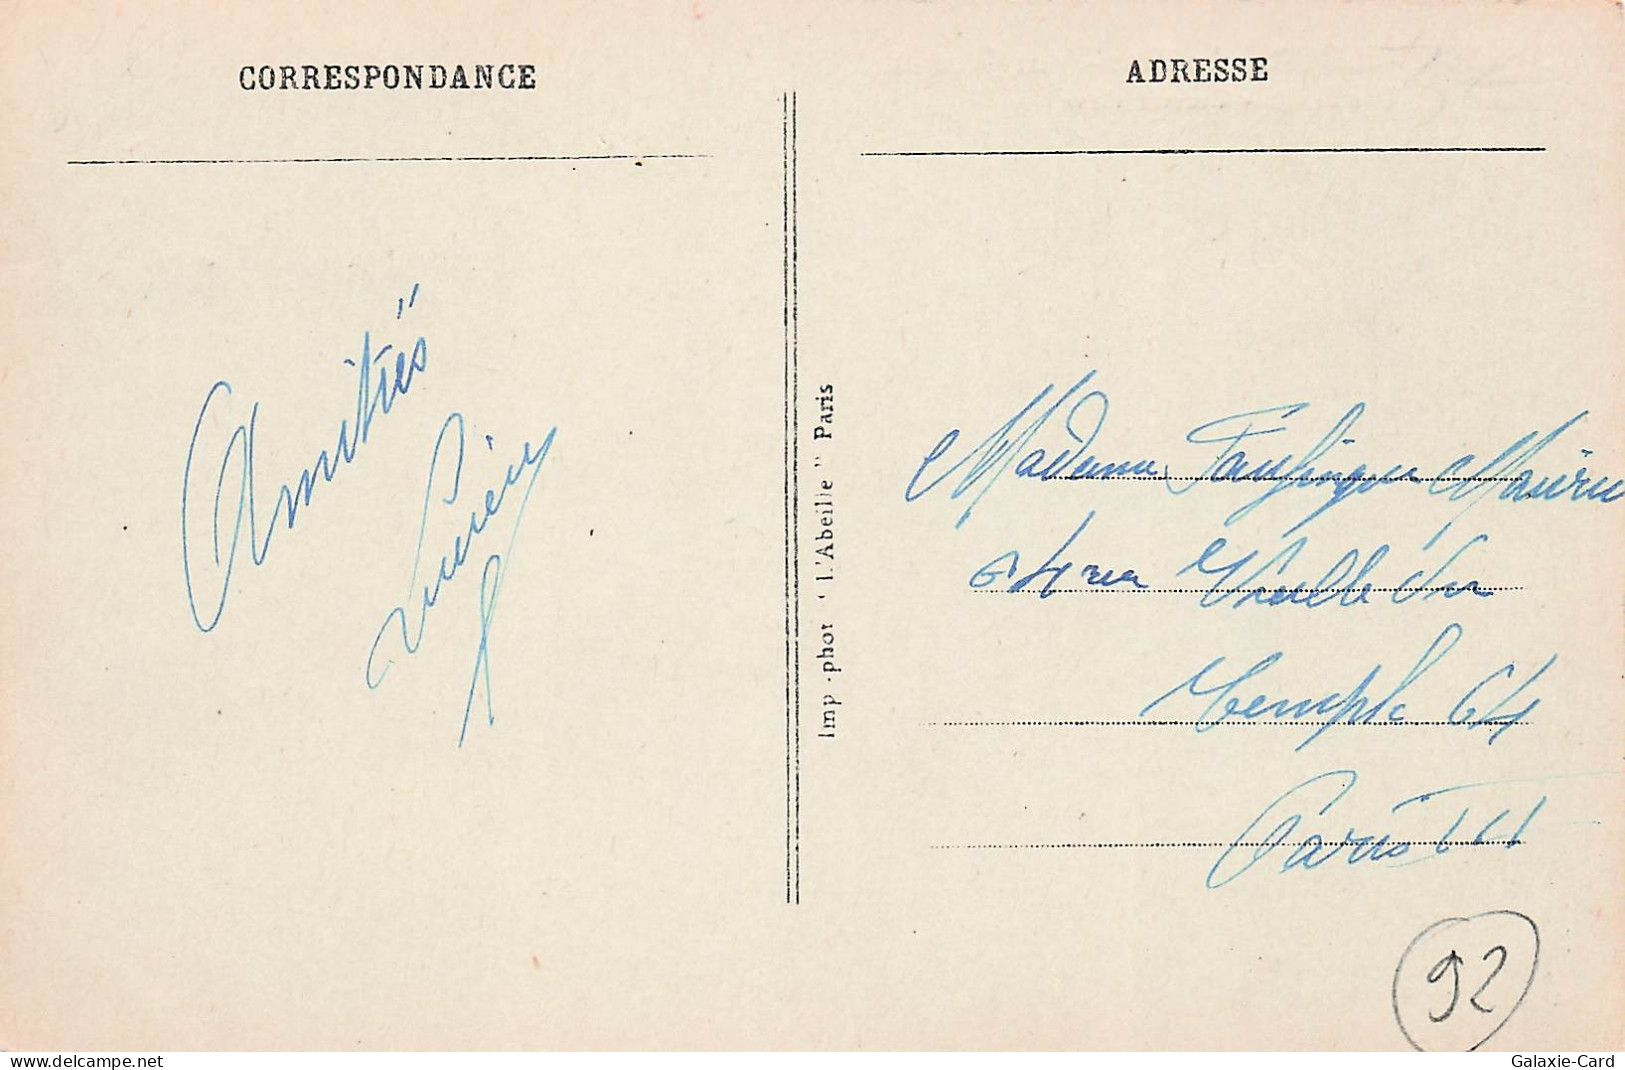 CORRESPONDANCE
Amitiés
Lucien
Imp.-phot "L'Abeille" Paris
ADRESSE
Madame
64 rue Vieille du
Temple 64
Paris
92
www.delcampe.net
Galaxie-Card